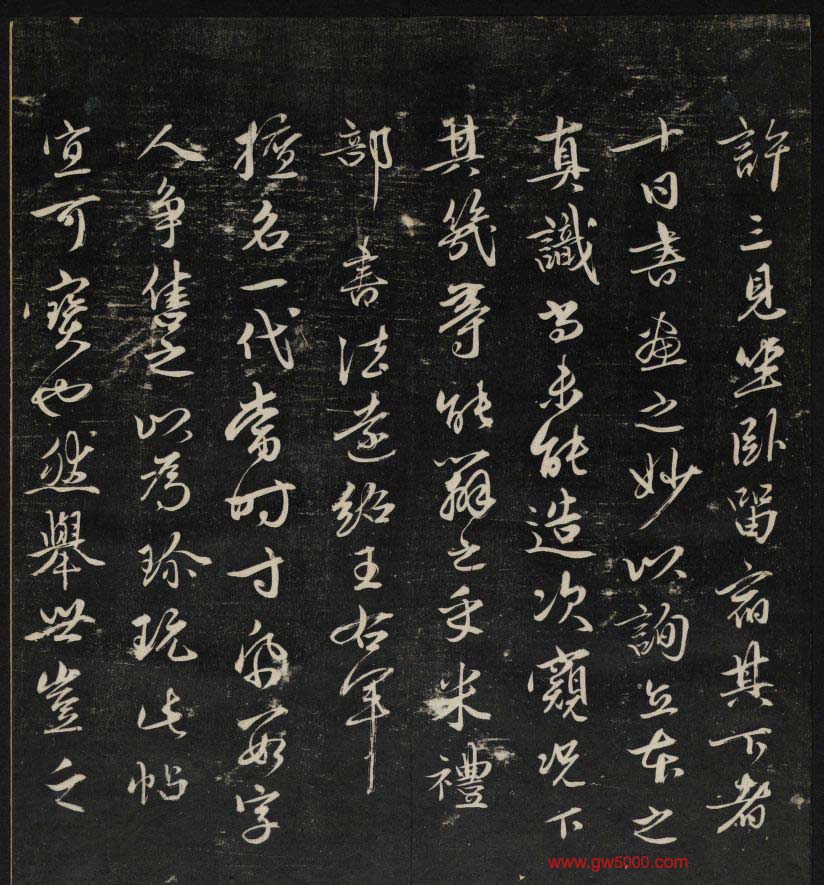 許三見坐臥留宿其下者
十日書畫之妙以詢立本之
真識尚未能造次窺況下
其幾等能辯之乎米禮
部書法遠紹王右軍
擅名一代當時寸帋數字
人爭售之以為珍玩此帖
宜可寶也然舉世豈乏
www.gw5000.com